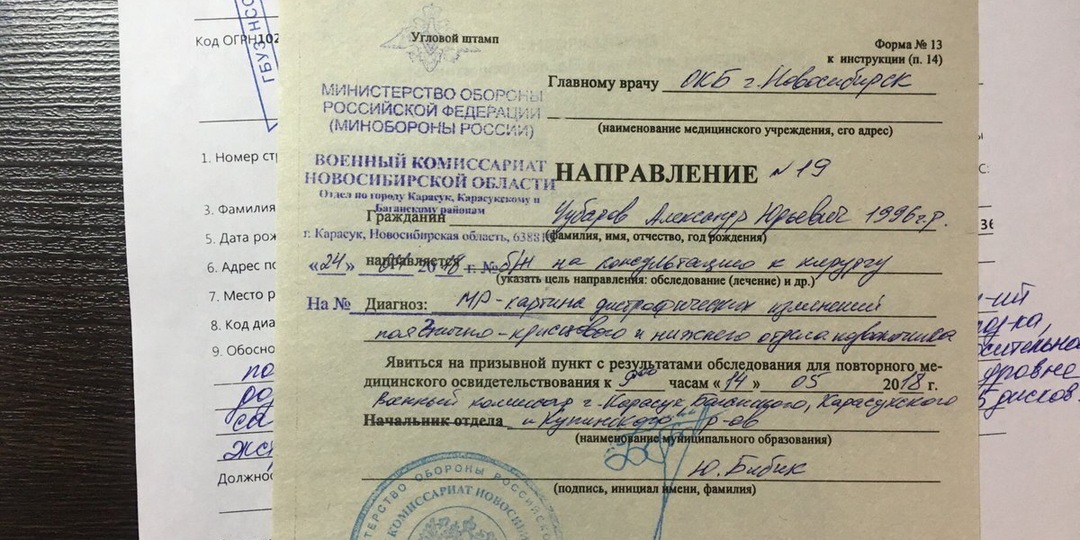 Код ОГРН102
ГБУЗ НСО
Угловой штамп
Форма № 13
к инструкции (п. 14)
Главному врачу ОКБ г. Новосибирск
(наименование медицинского учреждения, его адрес)
МИНИСТЕРСТВО ОБОРОНЫ
РОССИЙСКОЙ ФЕДЕРАЦИИ
(МИНОБОРОНЫ РОССИИ)
ВОЕННЫЙ КОМИССАРИАТ
НОВОСИБИРСКОЙ ОБЛАСТИ
Отдел по городу Карасук, Карасукскому и
Баганскому районам
г. Карасук, Новосибирская область, 6388
НАПРАВЛЕНИЕ №19
Гражданин Чубаров Александр Юрьевич 1996г.р.
(фамилия, имя, отчество, год рождения)
«24» 04 2018 г. № б/н
направляется на консультацию к хирургу
(указать цель направления: обследование (лечение) и др.)
На №
Диагноз: МР-картина дистрофических изменений
пояснично-крестцового и нижнего отдела позвоночника
Явиться на призывной пункт с результатами обследования для повторного ме-
дицинского освидетельствования к 9 00 часам «14» 05 2018 г.
Военный комиссар г. Карасук, Баганского, Карасукского
Начальник отдела и Купинского р-ов
(наименование муниципального образования)
Ю. Бибик
(подпись, инициал имени, фамилия)
ОБОРОНЫ РОССИЙСКО
КОМИССАРИАТ НОВОСИБ
1. Номер ст
3. Фамилия
5. Дата рож
6. Адрес по
7. Место р
8. Код диа
9. Обосно
Должнос
дисков.